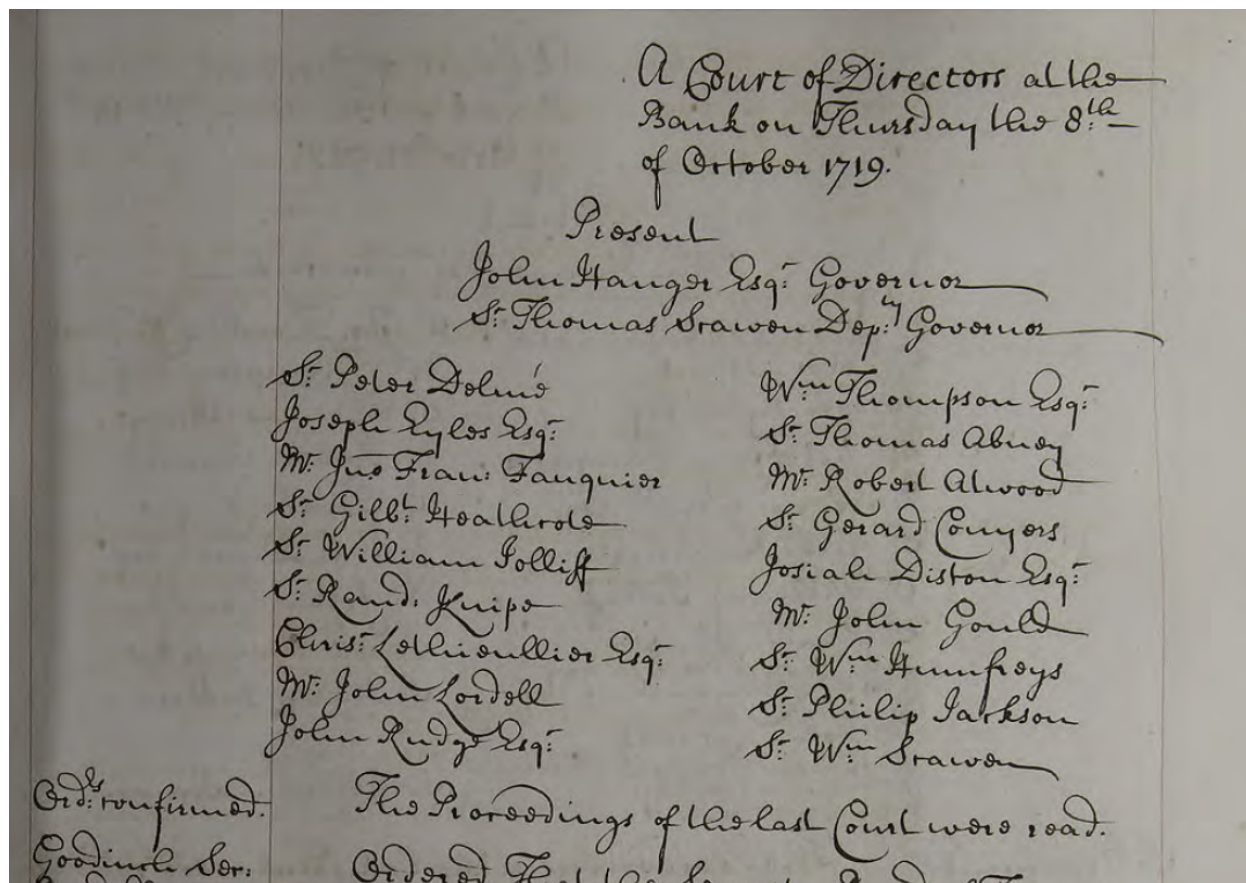 A Court of Directors at the
Bank on Thursday the 8th
of October 1719.
Present
John Hanger Esqr. Governor
Sr. Thomas Scawen Depty. Governor
Sr. Peter Delmé
Joseph Eyles Esqr.
Mr. Jno Fran: Fauquier
Sr. Gilbt. Heathcote
Sr. William Jolliff
Sr. Rand. Knipe
Chrisr. Lethieullier Esqr.
Mr. John Lordell
John Rudge Esqr.
Wm Thompson Esqr.
Sr. Thomas Abney
Mr. Robert Atwood
Sr. Gerard Conyers
Josiah Diston Esqr.
Mr. John Gould
Sr. Wm Humfreys
Sr. Philip Jackson
Sr. Wm Scawen
Ords. confirmed.
The Proceedings of the last Court were read.
Ser:
Ordered That the